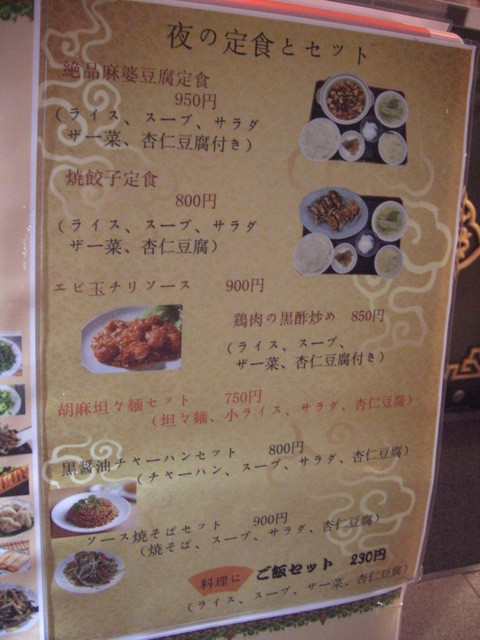 夜の定食とセット
絶品麻婆豆腐定食
950円
(ライス、スープ、サラダ
ザー菜、杏仁豆腐付き)
焼餃子定食
800円
(ライス、スープ、サラダ
ザー菜、杏仁豆腐)
エビ玉チリソース 900円
鶏肉の黒酢炒め 850円
(ライス、スープ、
ザー菜、杏仁豆腐付き)
胡麻坦々麺セット 750円
(坦々麺、小ライス、サラダ、杏仁豆腐)
黒醤油チャーハンセット 800円
(チャーハン、スープ、サラダ、杏仁豆腐)
ソース焼そばセット 900円
(焼そば、スープ、サラダ、杏仁豆腐)
料理に ご飯セット 230円
(ライス、スープ、ザー菜、杏仁豆腐)